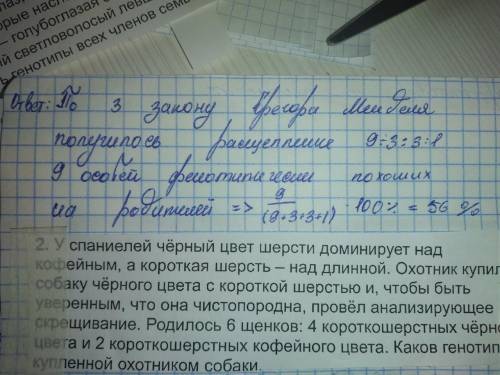 орые насл
– голубоглазая с
ий светловолосый левш
ь генотипы всех членов семь
Ответ: По 3 закону Грегора Менделя
получилось расщепление 9:3:3:1
9 особей фенотипически похожих
на родителей => 9/(9+3+3+1) · 100% = 56 %
2. У спаниелей чёрный цвет шерсти доминирует над
кофейным, а короткая шерсть – над длинной. Охотник купил
собаку чёрного цвета с короткой шерстью и, чтобы быть
уверенным, что она чистопородна, провёл анализирующее
скрещивание. Родилось 6 щенков: 4 короткошерстных чёрно
цвета и 2 короткошерстных кофейного цвета. Каков генотип
купленной охотником собаки.